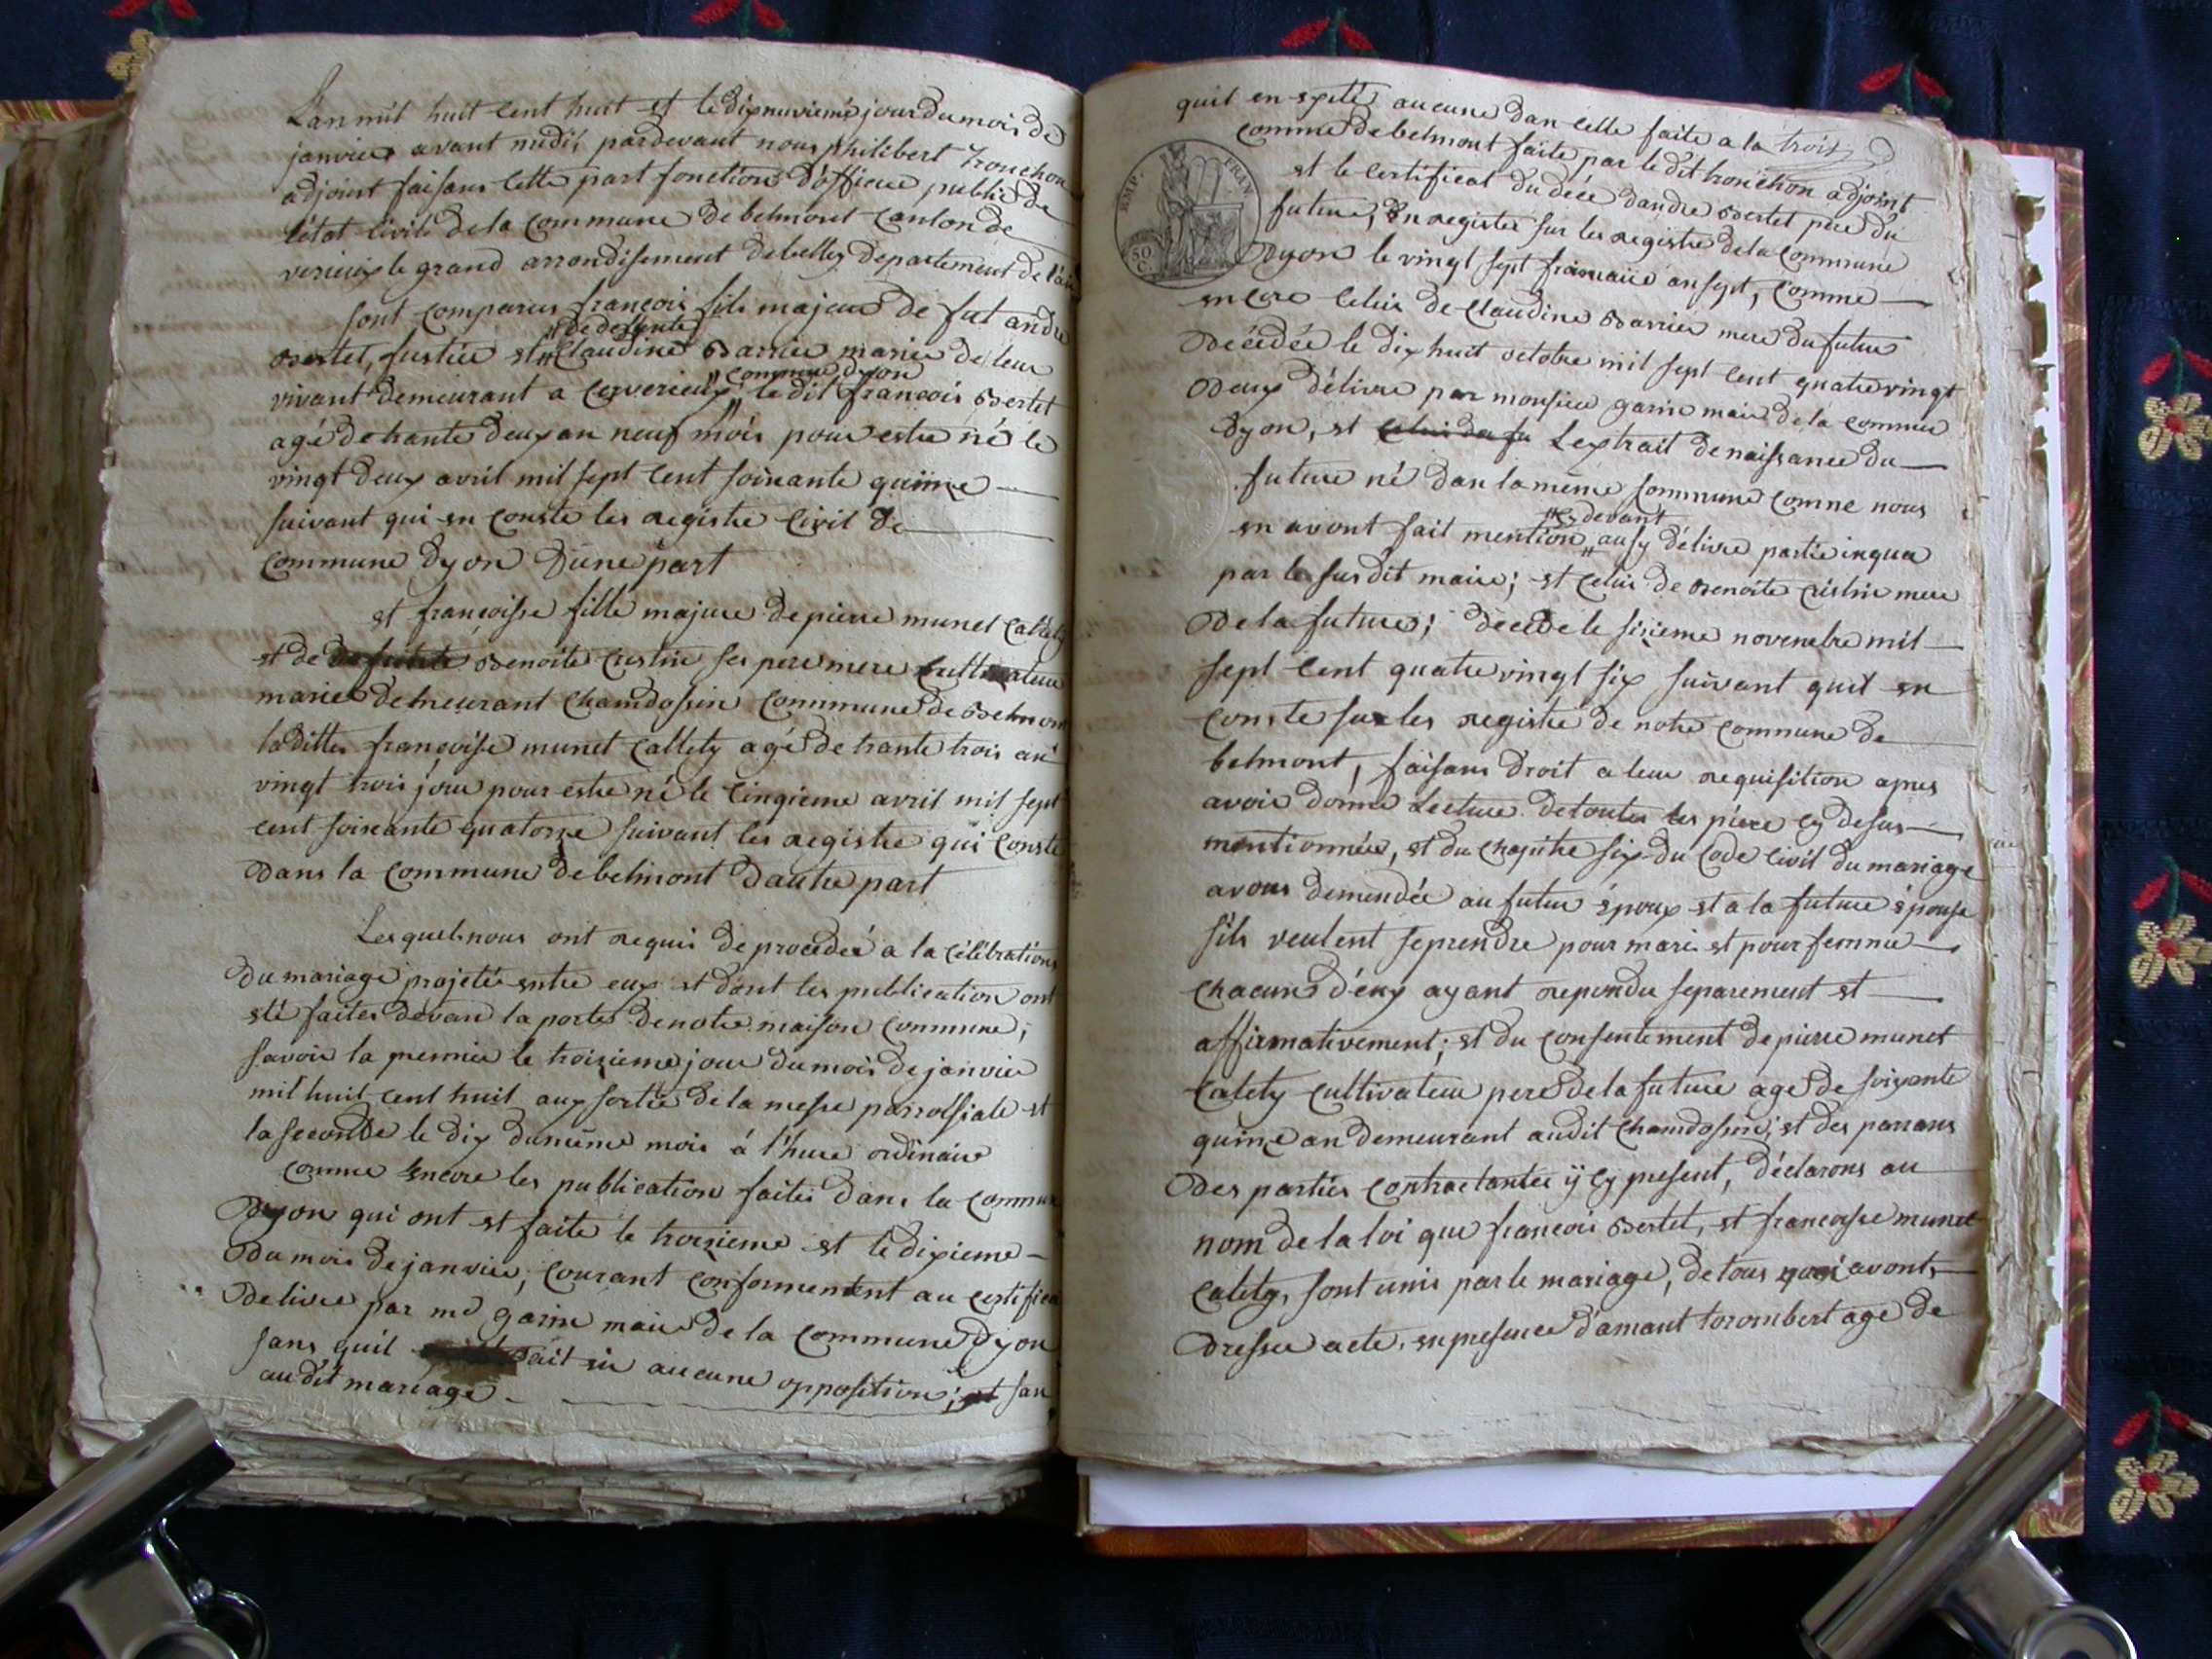 L'an mil huit cent huit et le dixneuvième jour du mois de
janvier avant midi, pardevant nous philibert Trouchon
adjoint faisans cette part fonction d'officier public de
l'état civil de la commune de belmont canton de
verieux le grand arrondisement de belley departement de l'ain
sont comparus françois fils majeur de fut andré
Bertet, fustier et "de defunte" Claudine Barrier mariés de leur
vivant demeurant a Cerverieux "commune dyon" le dit françois Bertet
agé de trante deux an neuf mois pour estre né le
vingt deux avril mil sept cent soixante quinze
suivant qui en conste les registre civil de
commune dyon d'une part
et françoisse fille majure de pierre munet Catlety
et de defunte Benoite Cristin ses pere mere cultivateur
mariés demeurant Chamdossin commune de Belmont
laditte françoise munet Catlety agé de trante trois an
vingt trois jour pour estre né le cinqieme avril mil sept
cent soixante quatorze suivant les registre qui conste
dans la commune de belmont dautre part
Lesquel nous ont requis de procedée a la célébration
du mariage projetés entre eux et dont les publication ont
eté faites devant la porte de notre maison commune;
savoir la premier le troizieme jour du mois de janvier
mil huit cent huit aux sortie de la messe parroissiale et
la seconde le dix du même mois á l'hure ordinaire
comme encore les publication faites dans la commune
dyon qui ont et faite le troizieme et le dixieme
du mois de janvier, courant conformement au certificat
delivre par mr garin maire de la commune dyon
sans quil ait eu aucune opposition; et san
audit mariage
quil en existé aucune dan celle faite a la trois
comme de belmont faite par le dit trouchon adjoint
EMP. FRANÇ
50 C.
et le certificat du décé dandré Bertet père du
future, Enregistre sur les registre de la commune
dyon le vingt sept frimaire an sept, comme
encore celui de Claudine Barrier mere du future
décédée le dix huit octobre mil sept cent quatre vingt
deux délivre par monsieur garin maire de la commue
dyon, et celui du fu Lextrait de naissance du
future né dan la même commune comne nous
en avont fait mention "cy devant" ausy délivre partie inqua
par le susdit maire; et celui de Benoite Cristin mere
de la future; décede le sizieme novembre mil
sept cent quatre vingt six suivant quil en
conste sur les registre de notre commune de
belmont, faisans droit a leur requisition apres
avoir donné Lecture de toutes les pièce cy desus
mentionnées, et du chapitre six du Code civil du mariage
avons demendée au futur époux et a la future épouse
sils veulent se prendre pour mari et pour femme
chacun d'eux ayant repondu separement et
affirmativement; et du consentement de pierre munet
Catety cultivateur pere de la future age de soixante
quinze an demeurant audit Chamdossin; et des parrans
des parties contractantes ÿ cy present, déclarons au
nom de la loi que françois Bertet, et francoisse munet
Catety, sont unis par le mariage, de tous quoi avont
dresser acte, en presence d'amant torombert age de